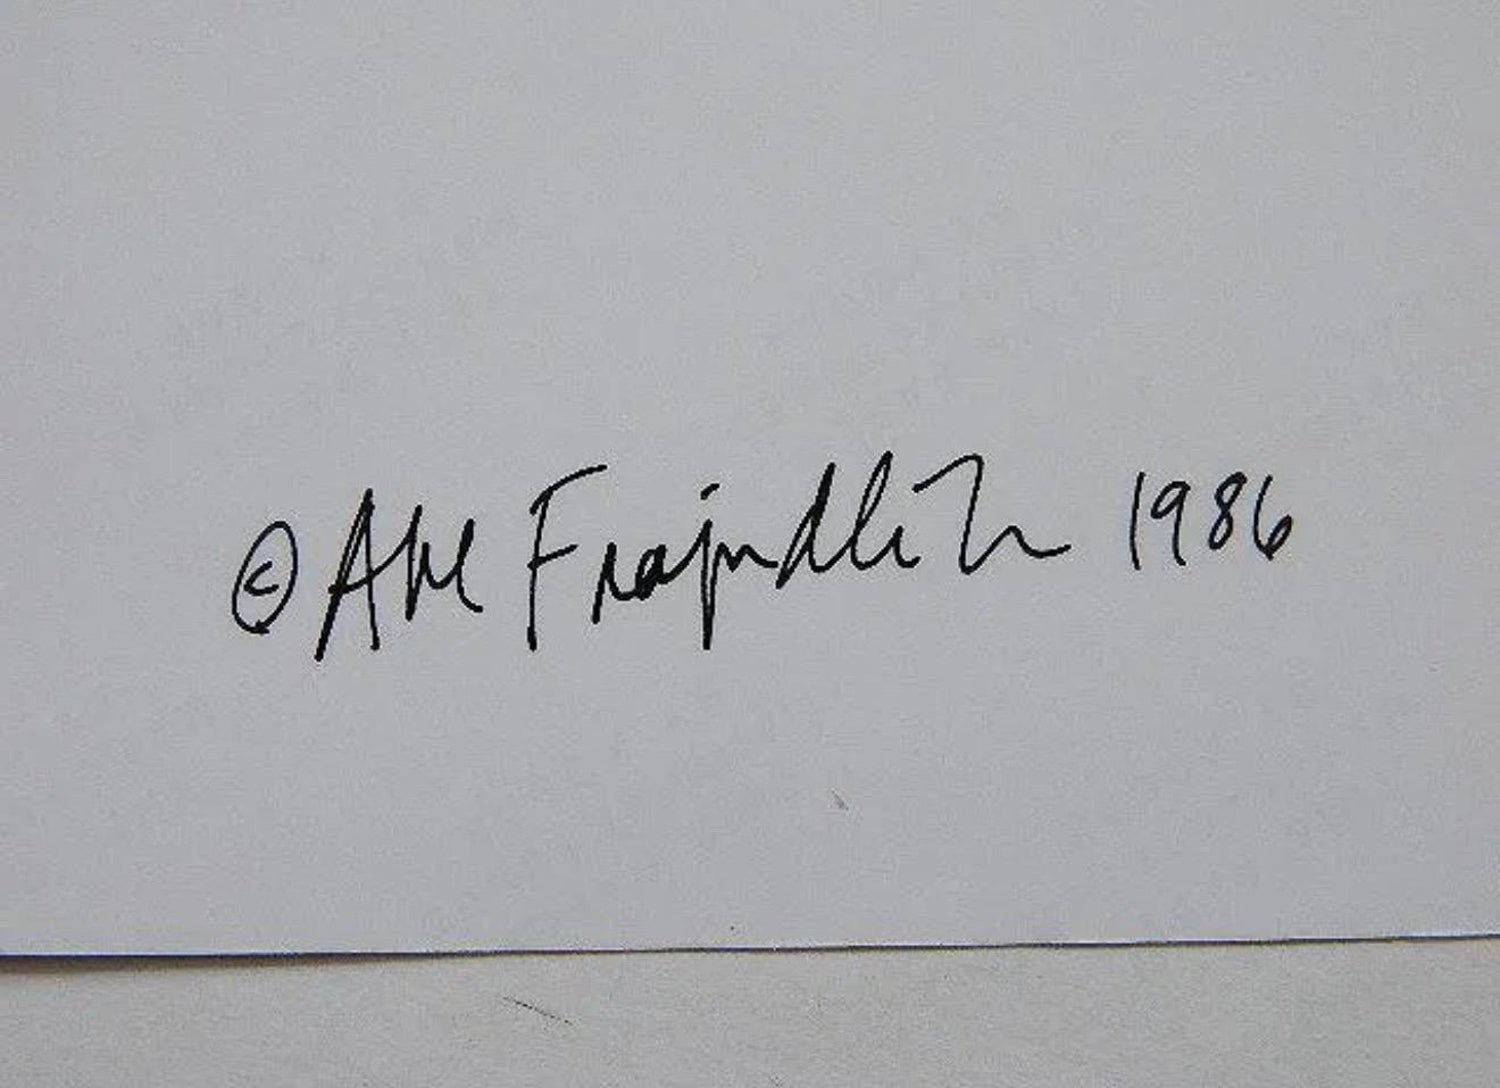 © Abe Frajndlich 1986